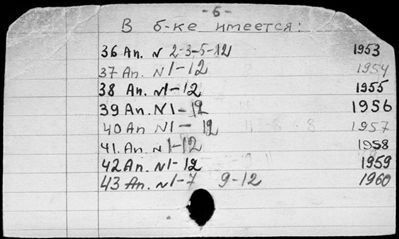 -6-
В б-ке имеется:
36 Ап. N 2-3-5-12 1953
37 Ап. N1-12 1954
38 Ап. N1-12 1955
39 Ап. N1-12 1956
40 Ап N1- 12 1957
41. Ап. N1-12 1958
42 Ап. N1-12 1959
43 Ап. N1-7 9-12 1960